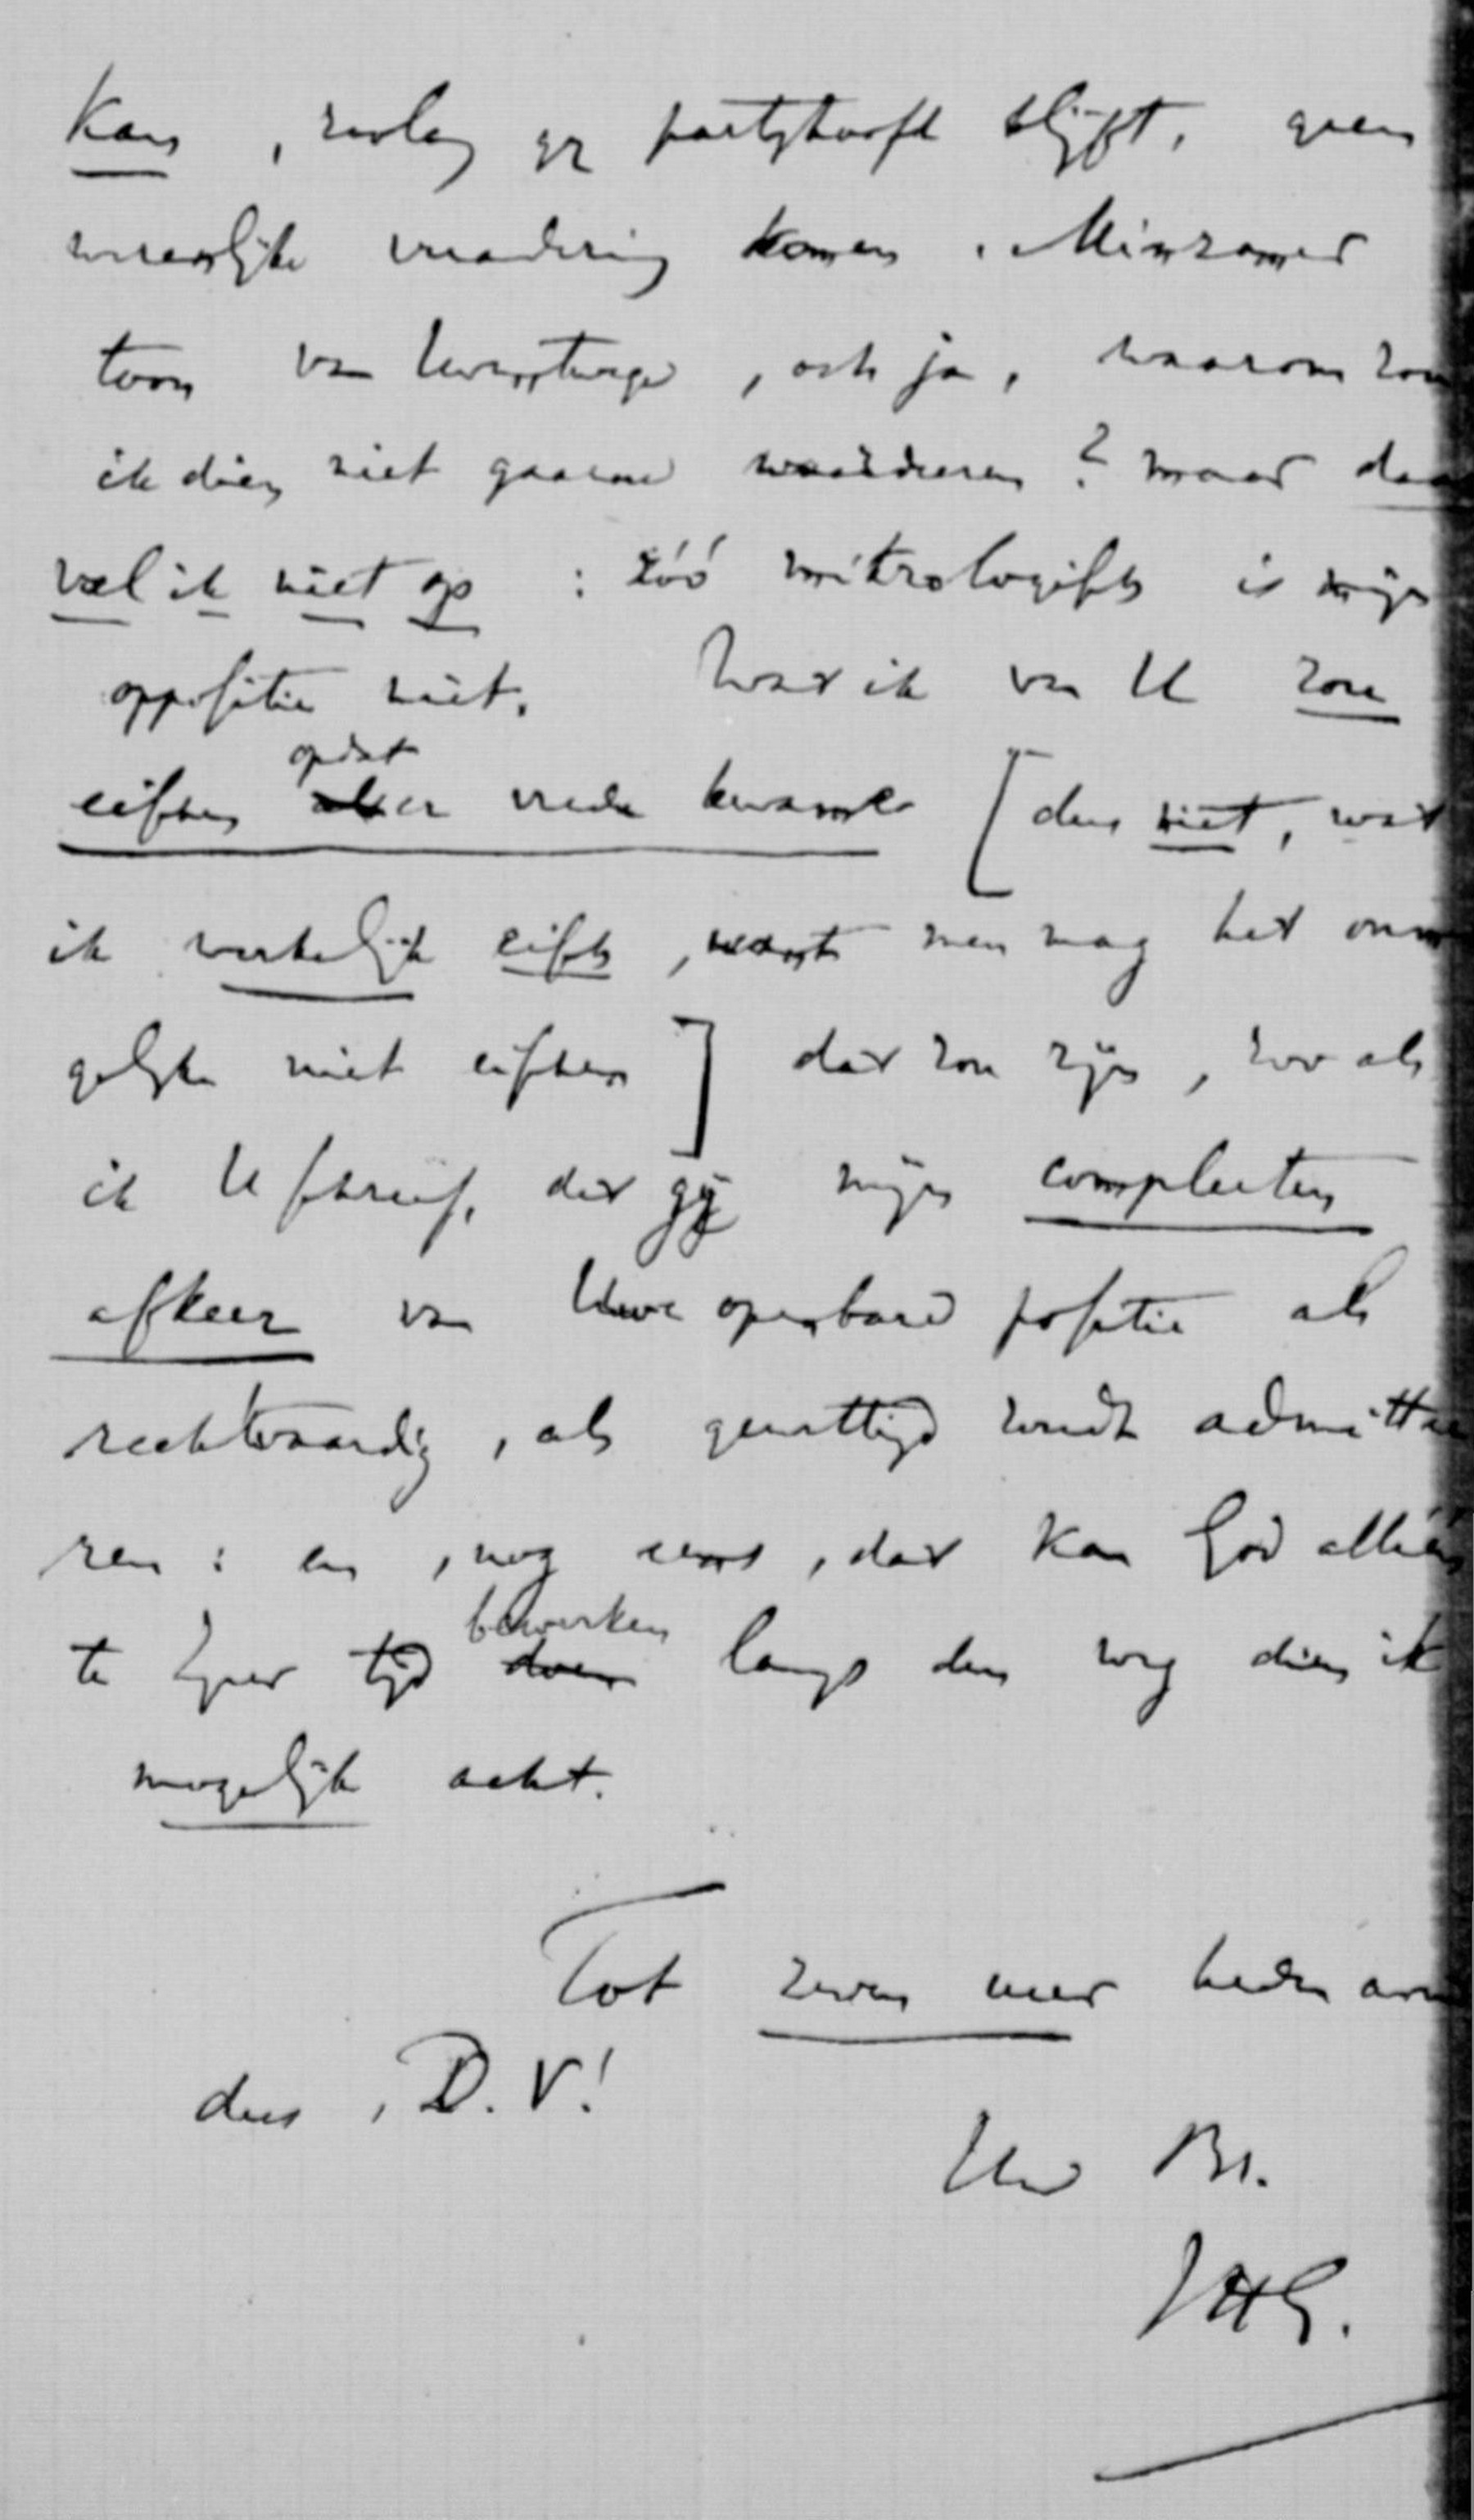 kan, zoolang gij partijhoofd blijft, geen
wezenlijke nadering komen. Minzamer
toon van Uwentwege, och ja, waarom zou
ik dien niet gaarne waardeeren? maar daar
val ik niet op: zóó mikrologisch is mijn
oppositie niet. Wat ik van U zou
eischen opdat er vrede kwame [dus niet, wat
ik werkelijk eisch, want men mag het onmo
gelijke niet eischen] dat zou zijn, zoo als
ik U schreef, dat gij mijn compleeten
afkeer van Uwe openbare positie als
rechtvaardig, als gewettigd zoudt admittee
ren: en, nog eens, dat kan God alléén
te Zijner tijd bewerken langs den weg dien ik
mogelijk acht.
Tot zeven uur heden avon
dus, D.V!
Uw Br.
JHG.